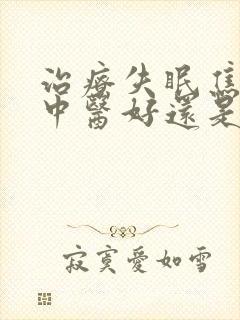 治療失眠焦
中醫好還是
寂寞愛如雪